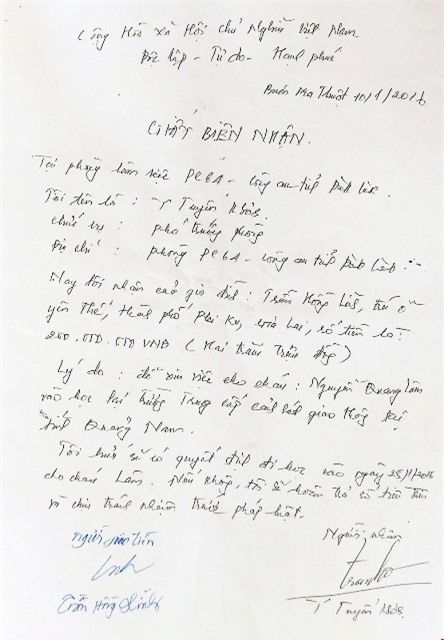 Cộng Hòa xã Hội chủ Nghĩa Việt Nam
Độc lập - Tự do - Hạnh phúc
Buôn Ma Thuột 10/1/2016
GIẤY BIÊN NHẬN.
Tại phòng làm việc PC61 - Công an tỉnh Đắk Lắk.
Tôi tên là : Y Tuyên Ksơr.
chức vụ : phó trưởng phòng
Địa chỉ : phòng PC61 - Công an tỉnh Đắk Lắk.
Nay tôi nhận của gia đình : Trần Hồng, trú ở
yên Thế, thành phố Plei Ku, Gia Lai, số tiền là:
250.000.000 VNĐ (Hai trăm triệu đồng)
Lý do : để xin việc cho cháu : Nguyễn Quang Lâm
vào học tại trường Trung cấp cảnh sát giao thông tại
tỉnh Quảng Nam.
Tôi hứa sẽ có quyết định đi học vào ngày 25/1/2016
cho cháu Lâm. Nếu không, tôi sẽ hoàn trả số tiền trên
và chịu trách nhiệm trước pháp luật.
Người nhận
Người đưa tiền
Trần Hồng
Y Tuyên Ksơr